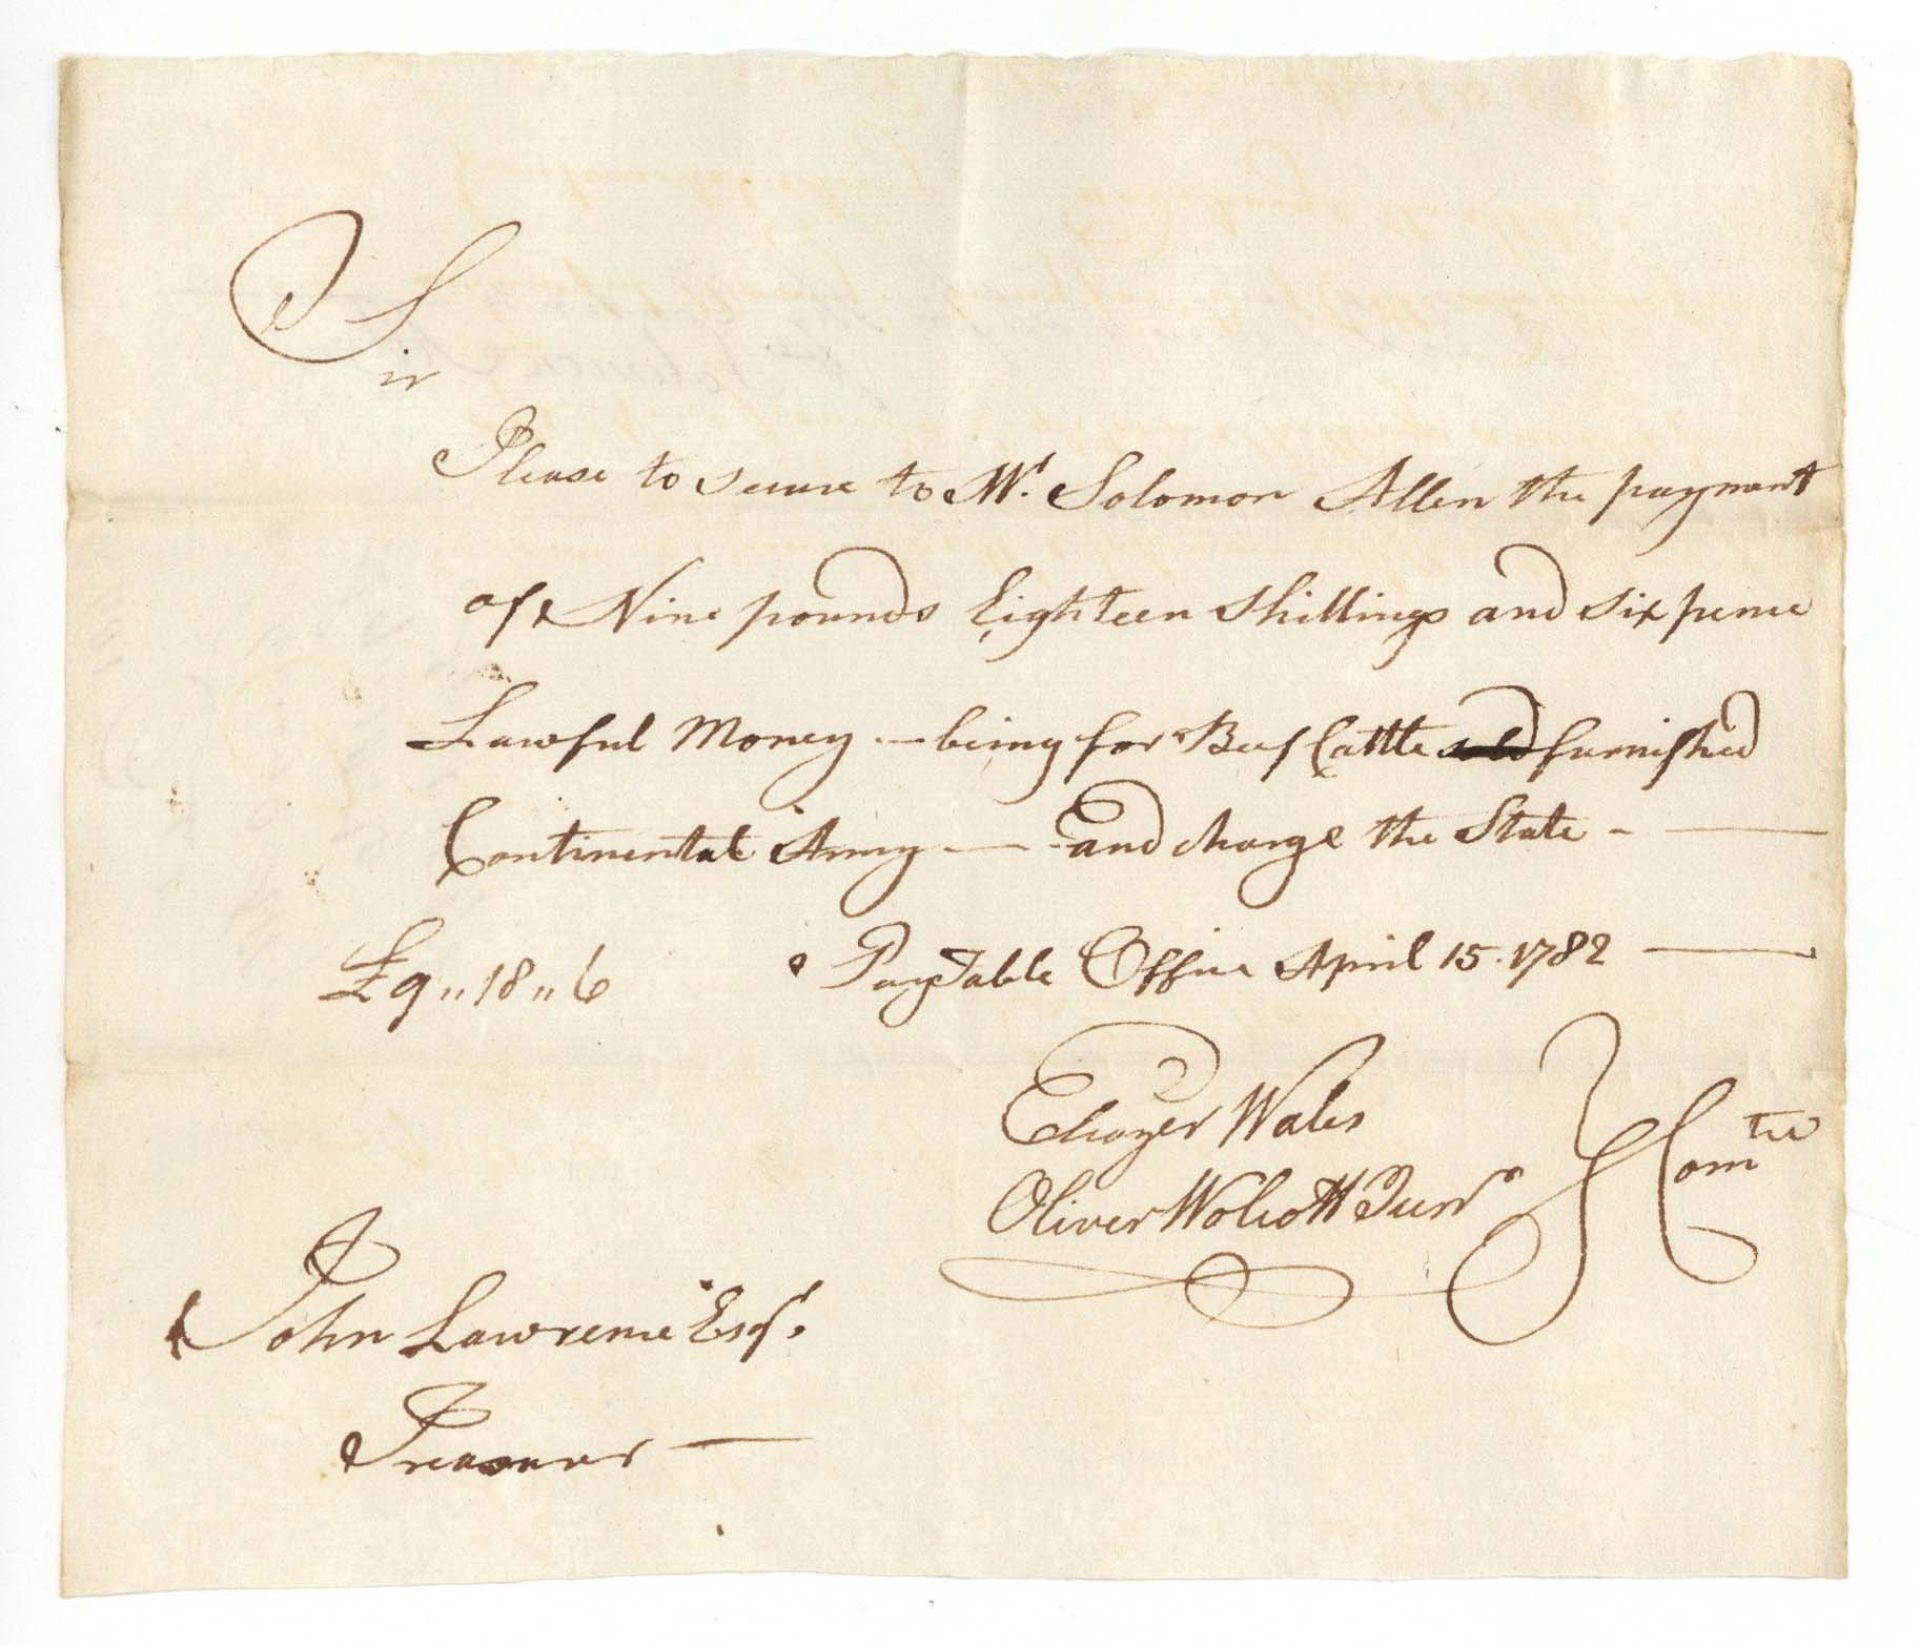 Sir
Please to secure to Mr. Solomon Allen the payment
of Nine pounds Eighteen Shillings and six pence
Lawful Money — being for Beef Cattle sold furnished
Continental Army — and charge the State —
£9 " 18 " 6 Pay Table Office April 15. 1782 —
Eleazer Wales
Oliver Wolcott Junr
Comtee
John Lawrence Esqr.
Treasurer —